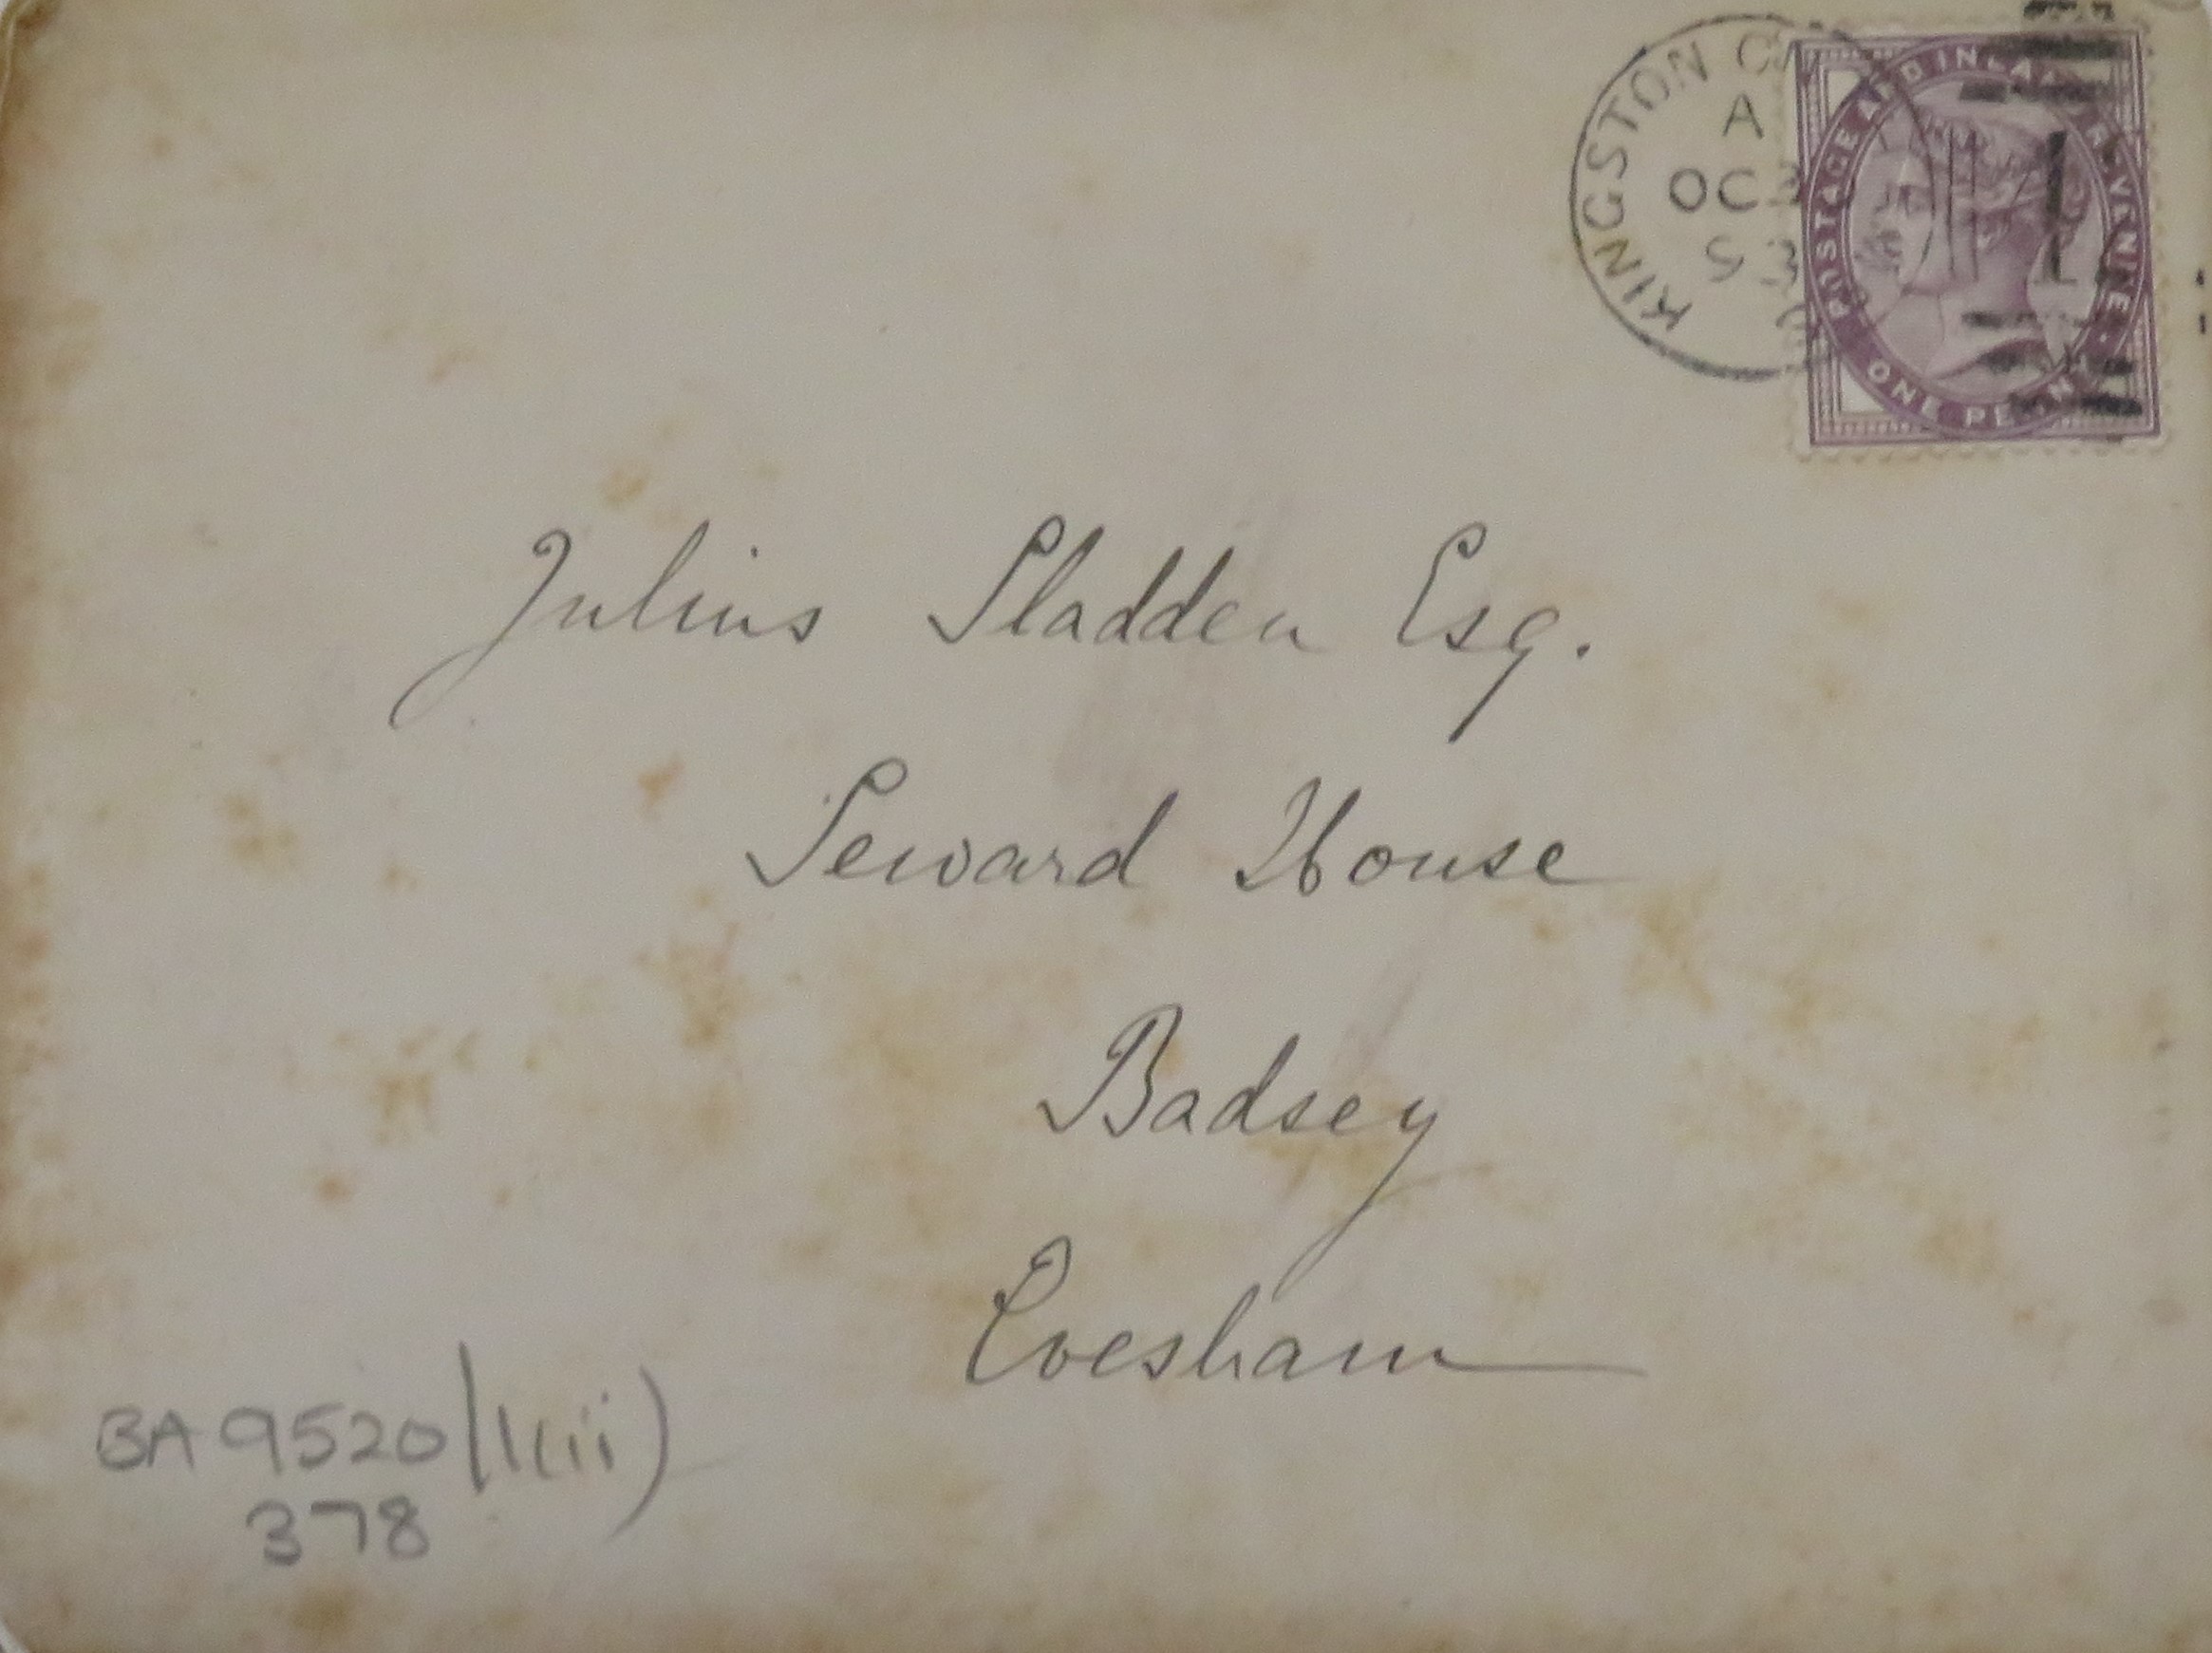 KINGSTON
A
OC
93
POSTAGE AND INLAND REVENUE.
ONE PENNY
Julius Sladden Esq.
Seward House
Badsey
Evesham
BA 9520/1(iii)
378